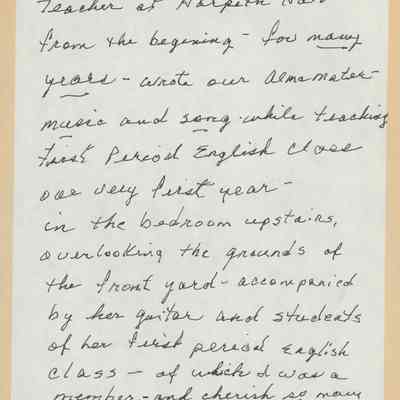 Teacher at Harpeth Hall
from the begining - for many
years - wrote our Alma mater -
music and song - while teaching
First Period English Class
our very first year -
in the bedroom upstairs,
overlooking the grounds of
the front yard - accompanied
by her guitar and students
of her first period English
class - of which I was a
member - and cherish so many